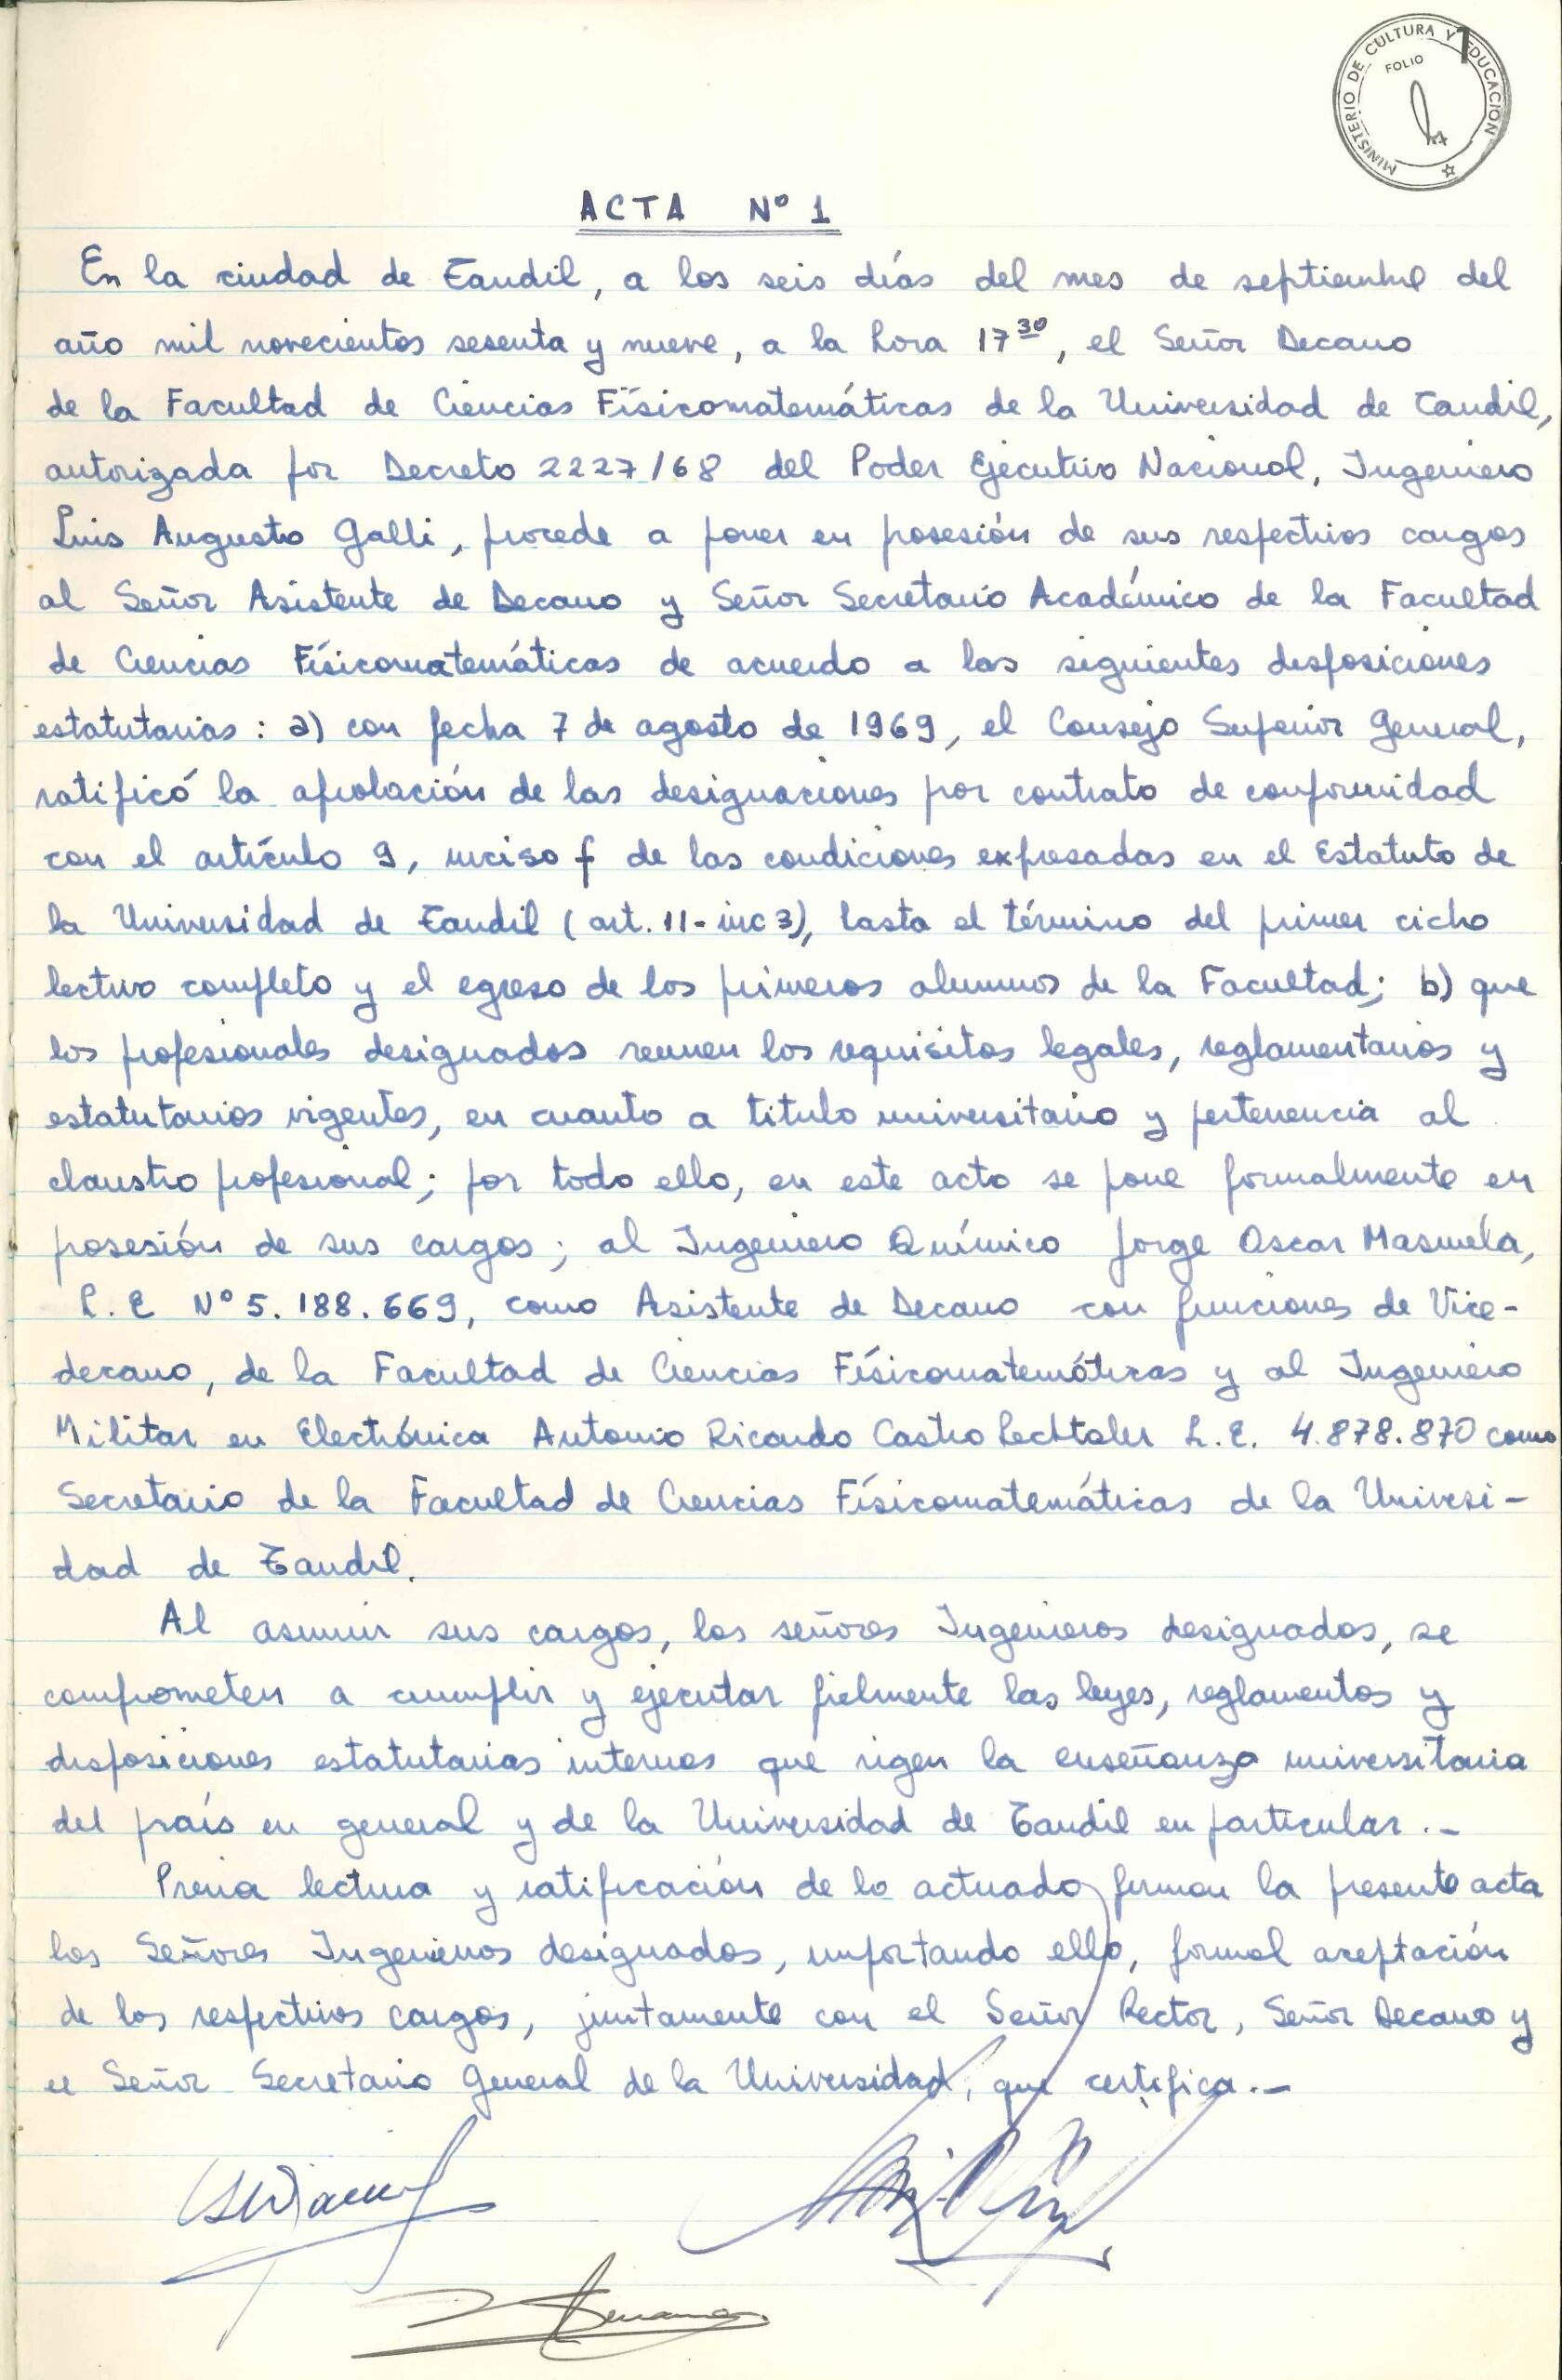 MINISTERIO DE CULTURA Y EDUCACION
FOLIO
1
ACTA Nº 1
En la ciudad de Tandil, a los seis días del mes de septiembre del
año mil novecientos sesenta y nueve, a la hora 17 30, el Señor Decano
de la Facultad de Ciencias Físicomatemáticas de la Universidad de Tandil,
autorizada por Decreto 2227/68 del Poder Ejecutivo Nacional, Ingeniero
Luis Augusto Galli, procede a poner en posesión de sus respectivos cargos
al Señor Asistente de Decano y Señor Secretario Académico de la Facultad
de Ciencias Físicomatemáticas de acuerdo a las siguientes disposiciones
estatutarias: a) con fecha 7 de agosto de 1969, el Consejo Superior General,
ratificó la aprobación de las designaciones por contrato de conformidad
con el artículo 9, inciso f de las condiciones expresadas en el Estatuto de
la Universidad de Tandil (art. 11-inc 3), hasta el término del primer ciclo
lectivo completo y el egreso de los primeros alumnos de la Facultad; b) que
los profesionales designados reunen los requisitos legales, reglamentarios y
estatutarios vigentes, en cuanto a título universitario y pertenencia al
claustro profesional; por todo ello, en este acto se pone formalmente en
posesión de sus cargos; al Ingeniero Químico Jorge Oscar Masmela,
L.E Nº 5.188.669, como Asistente de Decano con funciones de Vice-
decano, de la Facultad de Ciencias Físicomatemáticas y al Ingeniero
Militar en Electrónica Antonio Ricardo Castro Lechtaler L.E. 4.878.870 como
Secretario de la Facultad de Ciencias Físicomatemáticas de la Universi-
dad de Tandil.
Al asumir sus cargos, los señores Ingenieros designados, se
comprometen a cumplir y ejecutar fielmente las leyes, reglamentos y
disposiciones estatutarias internas que rigen la enseñanza universitaria
del país en general y de la Universidad de Tandil en particular.-
Previa lectura y ratificación de lo actuado firman la presente acta
los Señores Ingenieros designados, importando ello, formal aceptación
de los respectivos cargos, juntamente con el Señor Rector, Señor Decano y
el Señor Secretario General de la Universidad, que certifica.-